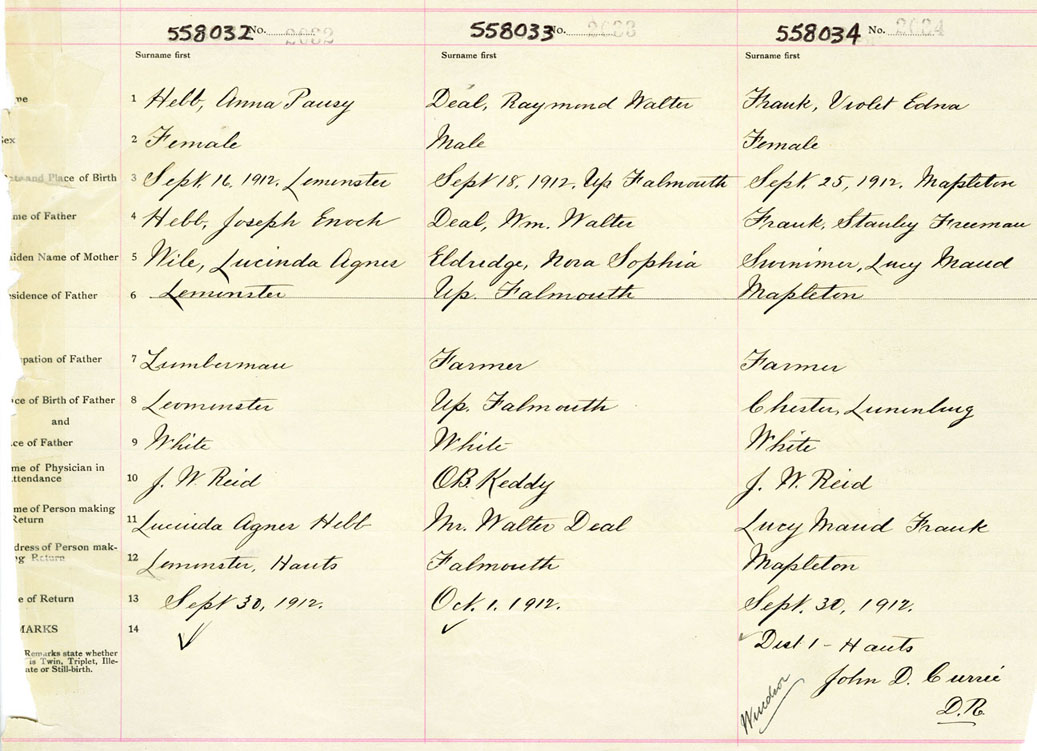 558032 No. 2632 558033 No. 2633 558034 No. 2634
Surname first Surname first Surname first
me 1 Hebb, Anna Pansy Deal, Raymond Walter Frank, Violet Edna
Sex 2 Female Male Female
Date and Place of Birth 3 Sept. 16, 1912. Leminster Sept 18, 1912. Up Falmouth Sept. 25, 1912. Mapleton
me of Father 4 Hebb, Joseph Enoch Deal, Wm. Walter Frank, Stanley Freeman
aiden Name of Mother 5 Wile, Lucinda Agnes Eldredge, Nora Sophia Swinimer, Lucy Maud
esidence of Father 6 Leminster Up. Falmouth Mapleton
pation of Father 7 Lumberman Farmer Farmer
ce of Birth of Father 8 Leominster Up. Falmouth Chester, Lunenburg
and
ce of Father 9 White White White
me of Physician in
ttendance 10 J. W. Reid O B. Keddy J. W. Reid
me of Person making
Return 11 Lucinda Agnes Hebb Mr. Walter Deal Lucy Maud Frank
dress of Person mak-
ng Return 12 Leminster, Hants Falmouth Mapleton
e of Return 13 Sept 30, 1912. Oct. 1. 1912. Sept. 30, 1912.
MARKS 14 ✓ ✓ ✓ Dist 1 - Hants
Remarks state whether
is Twin, Triplet, Ille-
ate or Still-birth.
John D. Currie
D.R.
Windsor